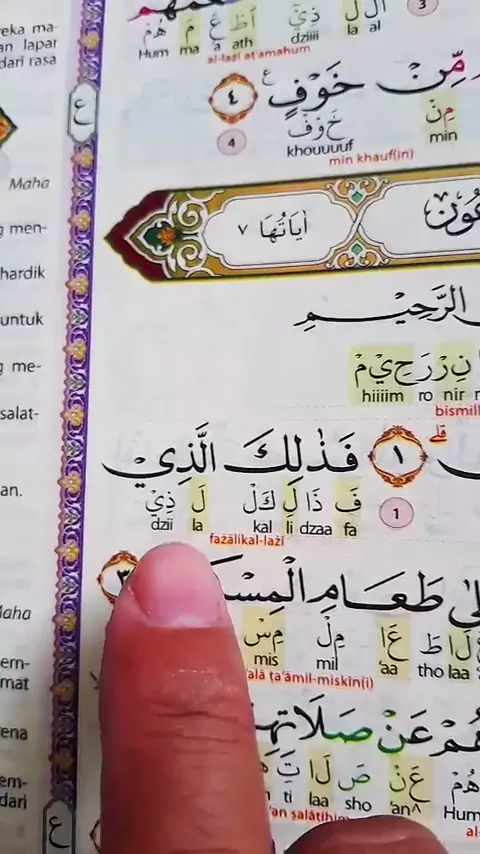 eka ma-
an lapar
dari rasa
ٱلْ لَ ذِيْٓ أَطْ عَ مَ هُمْ
la al dziiii ath 'a ma Hum
3
al-lażī aṭ'amahum
مِّنْ خَوْفٍ ࣖ ٤
مِنْ خَوْفْ
min khouuuuf
4
min khauf(in)
ع
Maha
اٰيَاتُهَا ٧
g men-
hardik
untuk
g me-
salat-
an.
الرَّحِيْمِ
نِرْ رَ حِيْ مْ
hiiiim ro nir
bismill
١ فَذٰلِكَ الَّذِيْ
فَ ذَا لِ كَلْ لَ ذِيْ
dzii la kal li dzaa fa
1
fażālikal-lażī
طَعَامِ الْمِسْ
٣
لَا طَ عَا مِلْ مِسْ
mis mil 'aa tho laa
'alā ṭa'āmil-miskīn(i)
هُمْ عَنْ صَلَاتِهِ
هُمْ عَنْ صَ لَا تِ
ti laa sho 'an^ Hum
'an ṣalātihim
al-
Maha
em-
mat
ena
em-
dari
ع